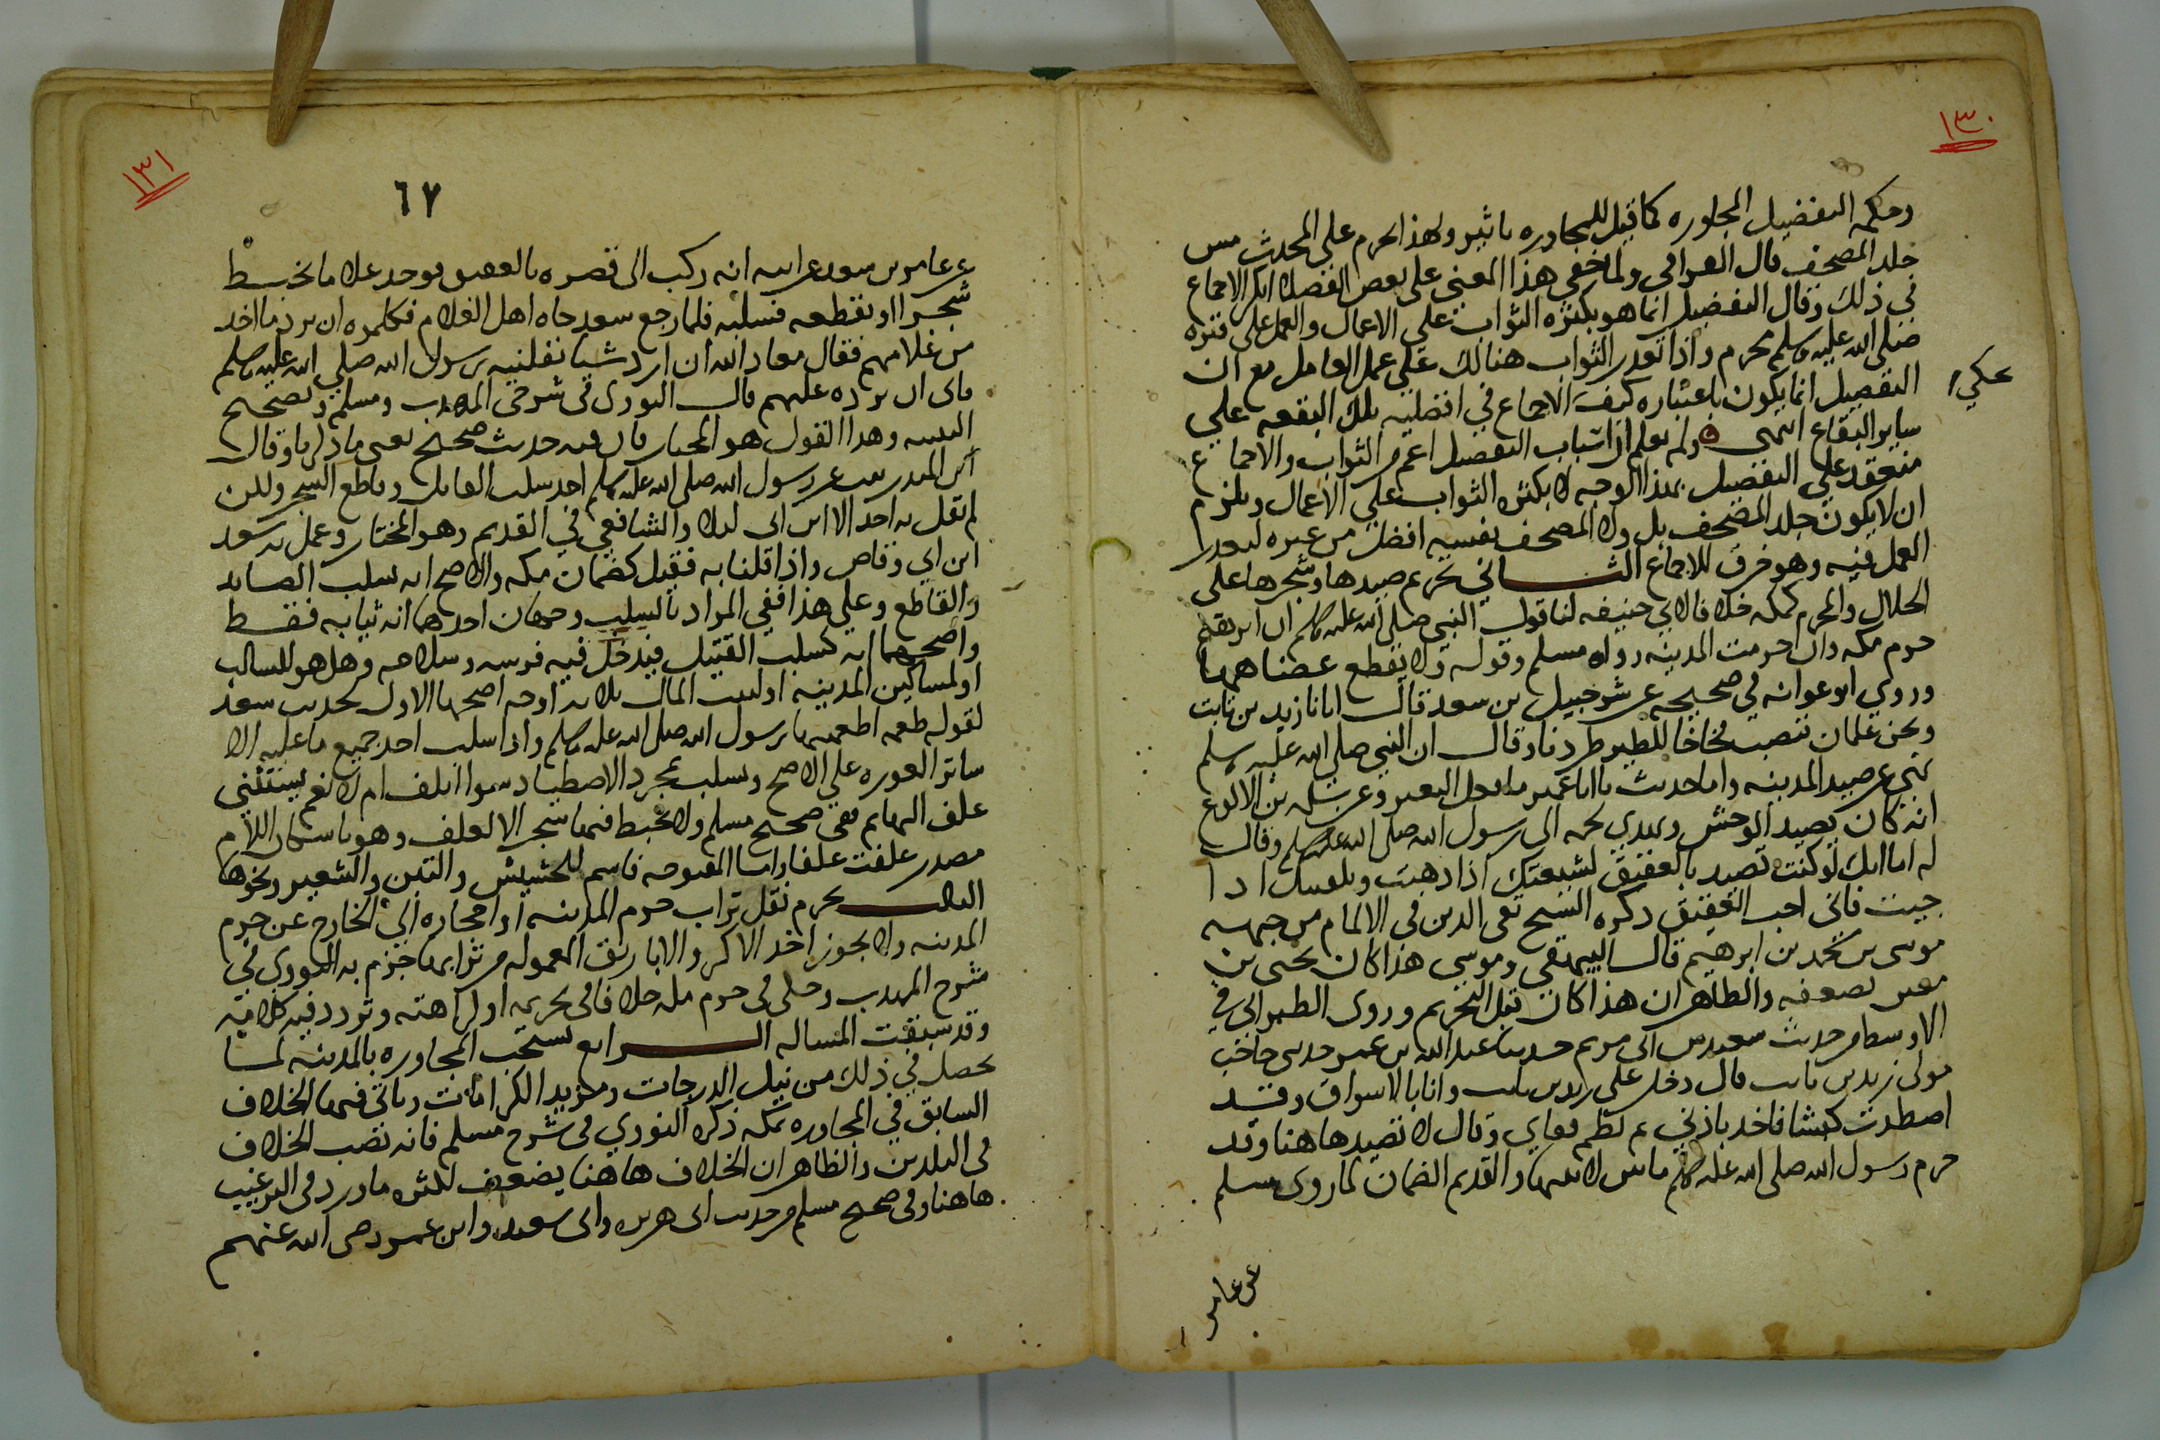 ١٣٠
وحكمه التفضيل المجاوره كما قيل للمجاوره تاثير ولهذا يحرم على المحدث مس
جلد المصحف قال القرافي ولما خفي هذا المعنى على بعض الفضلا انكر الاجماع
في ذلك وقال التفضيل انما هو بكثره الثواب على الاعمال والعمل على قبره
صلى الله عليه وسلم محرم واذا تعذر الثواب هنالك على عمل العامل مع ان
التفضيل انما يكون باعتباره كيف الاجماع في افضليه تلك البقعه على
حكي
ساير البقاع انتهى ولم يعلم ان اسباب التفضيل اعم من الثواب والاجماع
منعقد على التفضيل بهذا الوجه لا بكثره الثواب على الاعمال ويلزم
ان لا يكون جلد المصحف بل ولا المصحف نفسه افضل من غيره لتعذر
العمل فيه وهو خرق للاجماع الثاني يحرم صيدها وشجرها على
الحلال والمحرم كمكه خلافا لابي حنيفه لنا قول النبي صلى الله عليه وسلم ان ابرهيم
حرم مكه واني حرمت المدينه رواه مسلم وقوله ولا يقطع عضاهها
وروي ابو عوانه في صحيحه عن شرحبيل بن سعد قال اتانا زيد بن ثابت
ونحن غلمان ننصب فخاخا للطير طردنا وقال ان النبي صلى الله عليه وسلم
نهى عن صيد المدينه واما حديث يا ابا عمير ما فعل النغير وعن سلمه بن الاكوع
انه كان يصيد الوحش ويهدي لحمه الى رسول الله صلى الله عليه وسلم وقال
له اما انك لو كنت تصيد بالعقيق لشيعتك اذا ذهبت وتلقيتك اذا
جيت فاني احب العقيق ذكره الشيخ تقي الدين في الالمام من جهه
موسى بن محمد بن ابرهيم قال البيهقي وموسى هذا كان يحيى بن
معين يضعفه والظاهر ان هذا كان قبل التحريم وروى الطبراني في
الاوسط من حديث سعيد بن ابي مريم حدثنا عبد الله بن عمر حدثني حاجب
مولى زيد بن ثابت قال دخل علي زيد بن ثابت وانا بالاسواف وقد
اصطدت فاخذ باذني ثم لطم قفاي وقال لا تصيدها هنا وقد
حرم رسول الله صلى الله عليه وسلم ما بين لابتيها والقديم الضمان لما روى مسلم
عن عامر
١٣١
٦٧
عن عامر بن سعد عن ابيه انه ركب الى قصره بالعقيق فوجد غلاما يخبط
شجرا او يقطعه فسلبه فلما رجع سعد جاه اهل الغلام فكلموه ان يرد ما اخذ
من غلامهم فقال معاذ الله ان ارد شيا نفلنيه رسول الله صلى الله عليه وسلم
وابى ان يرده عليهم قال النووي في شرحي المهذب ومسلم وتصحيح
التنبيه وهذا القول هو المختار فان فيه حديث صحيح يعني ما ذكرنا وقال
ابن المنذر ثبت عن رسول الله صلى الله عليه وسلم اخذ سلب القاتل وقاطع الشجر ولكن
لم يقل به احد الا ابن ابي ليلا والشافعي في القديم وهو المختار وعمل به سعد
ابن ابي وقاص واذا قلنا به فقيل كضمان مكه والاصح انه سلب الصايد
والقاطع وعلى هذا ففي المراد بالسلب وجهان احدهما انه ثيابه فقط
واصحهما انه كسلب القتيل فيدخل فيه فرسه وسلاحه وهل هو للسالب
او لمساكين المدينه او لبيت المال ثلاثه اوجه اصحها الاول لحديث سعد
لقوله طعمه اطعمنيها رسول الله صلى الله عليه وسلم واذا سلب اخذ جميع ما عليه الا
ساتر العوره على الاصح ويسلب بمجرد الاصطياد سوا اتلف ام لا نعم يستثنى
علف البهايم ففي صحيح مسلم ولا تخبط فيها شجر الا لعلف وهو باسكان اللام
مصدر علفت علفا واما المفتوحه فاسم للحشيش والتبن والشعير ونحوها
الثالث يحرم نقل تراب حرم المدينه او احجاره الى الخارج عن حرم
المدينه ولا يجوز اخذ الاكر والاباريق المعموله من ترابها جزم به النووي في
شرح المهذب وحكى في حرم مكه خلافا في تحريمه او كراهته وتردد فيه كلامه
وقد سبقت المساله الرابع يستحب المجاوره بالمدينه لما
يحصل في ذلك من نيل الدرجات ومزيد الكرامات وياتي فيها الخلاف
السابق في المجاوره بمكه ذكره النووي في شرح مسلم فانه نصب الخلاف
في البلدين والظاهر ان الخلاف هاهنا يضعف لكثره ما ورد في الترغيب
هاهنا وفي صحيح مسلم من حديث ابي هريره وابي سعيد وابن عمر رضي الله عنهم